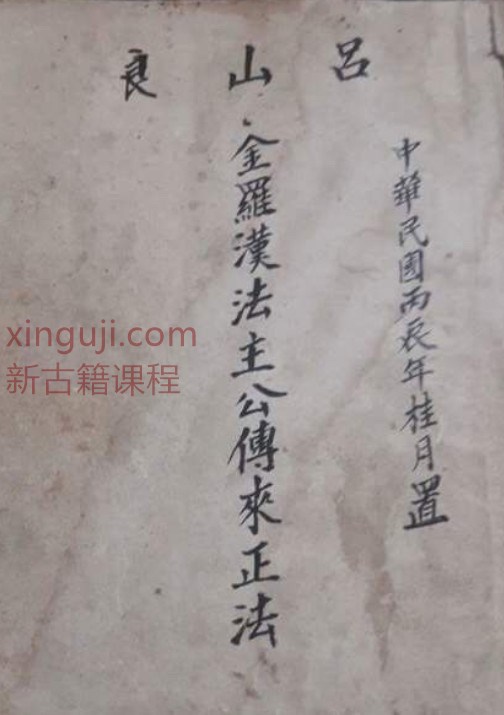 呂山良
中華民國丙辰年桂月置
金羅漢法主公傳來正法
xinguji.com
新古籍课程